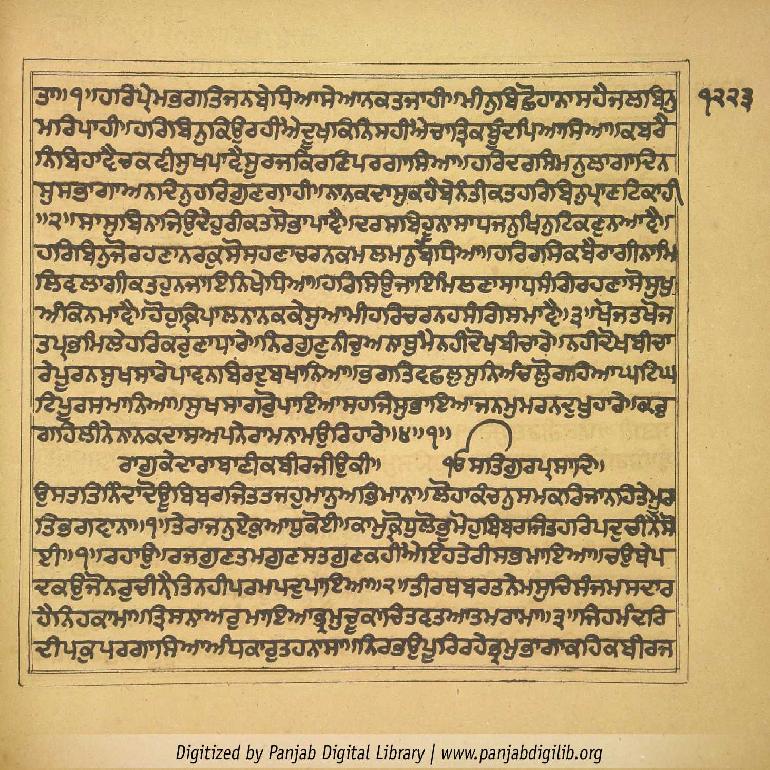 ਤਾ॥੧॥ਹਰਿਪ੍ਰੇਮਭਗਤਿਜਨਬੇਧਿਆਸੇਆਨਕਤਜਾਹੀ॥ਮੀਨੁਬਿਛੋਹਾਨਾਸਹੈਜਲਬਿਨੁ
ਮਰਿਪਾਹੀ॥ਹਰਿਬਿਨੁਕਿਉਰਹੀਐਦੂਖਕਿਨਿਸਹੀਐਚਾਤ੍ਰਿਕਬੂੰਦਪਿਆਸਿਆ॥ਕਬਰੈ
ਨਿਬਿਹਾਵੈਚਕਵੀਸੁਖਪਾਵੈਸੂਰਜਕਿਰਣਿਪਰਗਾਸਿਆ॥ਹਰਿਦਰਸਿਮਨੁਲਾਗਾਦਿਨ
ਸੁਸਭਾਗਾਅਨਦਿਨੁਹਰਿਗੁਣਗਾਹੀ॥ਨਾਨਕਦਾਸੁਕਹੈਬੇਨੰਤੀਕਤਹਰਿਬਿਨੁਪ੍ਰਾਣਟਿਕਾਹੀ
॥੨॥ਸਾਸਬਿਨਾਜਿਉਦੇਹੁਰੀਕਤਸੋਭਾਪਾਵੈ॥ਦਰਸਬਿਹੂਨਾਸਾਧਜਨੁਖਿਨੁਟਿਕਣੁਨਆਵੈ॥
ਹਰਿਬਿਨੁਜੋਰਹਣਾਨਰਕੁਸੋਸਹਣਾਚਰਨਕਮਲਮਨੁਬੇਧਿਆ॥ਹਰਿਰਸਿਕਬੈਰਾਗੀਨਾਮਿ
ਲਿਵਲਾਗੀਕਤਹੁਨਜਾਇਨਿਖੇਧਿਆ॥ਹਰਿਸਿਉਜਾਇਮਿਲਣਾਸਾਧਸੰਗਿਰਹਣਾਸੋਸੁਖੁ
ਅੰਕਿਨਮਾਵੈ॥ਹੋਹੁਕ੍ਰਿਪਾਲਨਾਨਕਕੇਸੁਆਮੀਹਰਿਚਰਨਹਸੰਗਿਸਮਾਵੈ॥੩॥ਖੋਜਤਖੋਜ
ਤਪ੍ਰਭਮਿਲੇਹਰਿਕਰੁਣਾਧਾਰੇ॥ਨਿਰਗੁਣੁਨੀਚੁਅਨਾਥੁਮੈਨਹੀਦੋਖਬੀਚਾਰੇ॥ਨਹੀਦੋਖਬੀਚਾ
ਰੇਪੂਰਨਸੁਖਸਾਰੇਪਾਵਨਬਿਰਦੁਬਖਾਨਿਆ॥ਭਗਤਿਵਛਲੁਸੁਨਿਅੰਚਲੋੁਗਹਿਆਘਟਿਘ
ਟਿਪੂਰਸਮਾਨਿਆ॥ਸੁਖਸਾਗਰੋੁਪਾਇਆਸਹਜਿਸੁਭਾਇਆਜਨਮੁਮਰਨਦੁਖੁਹਾਰੇ॥ਕਰੁ
ਗਹਿਲੀਨੇਨਾਨਕਦਾਸਅਪਨੇਰਾਮਨਾਮਉਰਿਹਾਰੇ॥੪॥੧॥
ਰਾਗੁਕੇਦਾਰਾਬਾਣੀਕਬੀਰਜੀਉਕੀ॥ ੴਸਤਿਗੁਰਪ੍ਰਸਾਦਿ॥
ਉਸਤਤਿਨਿੰਦਾਦੋਊਬਿਬਰਜਿਤਤਜਹੁਮਾਨੁਅਭਿਮਾਨਾ॥ਲੋਹਾਕੰਚਨੁਸਮਕਰਿਜਾਨਹਿਤੇਮੂਰ
ਤਿਭਗਵਾਨਾ॥੧॥ਤੇਰਾਜਨੁਏਕੁਆਧੁਕੋਈ॥ਕਾਮੁਕ੍ਰੋਧੁਲੋਭੁਮੋਹੁਬਿਬਰਜਿਤਹਰਿਪਦੁਚੀਨੈਸੋ
ਈ॥੧॥ਰਹਾਉ॥ਰਜਗੁਣਤਮਗੁਣਸਤਗੁਣਕਹੀਐਇਹਤੇਰੀਸਭਮਾਇਆ॥ਚਉਥੇਪ
ਦਕਉਜੋਨਰੁਚੀਨੈਤਿਨਹੀਪਰਮਪਦੁਪਾਇਆ॥੨॥ਤੀਰਥਬਰਤਨੇਮਸੁਚਿਸੰਜਮਸਦਾਰ
ਹੈਨਿਹਕਾਮਾ॥ਤ੍ਰਿਸਨਾਅਰੁਮਾਇਆਭ੍ਰਮੁਚੂਕਾਚਿਤਵਤਆਤਮਰਾਮਾ॥੩॥ਜਿਹਮੰਦਰਿ
ਦੀਪਕੁਪਰਗਾਸਿਆਅੰਧਕਾਰੁਤਹਨਾਸਾ॥ਨਿਰਭਉਪੂਰਿਰਹੇਭ੍ਰਮੁਭਾਗਾਕਹਿਕਬੀਰਜ
੧੨੨੩
Digitized by Panjab Digital Library | www.panjabdigilib.org